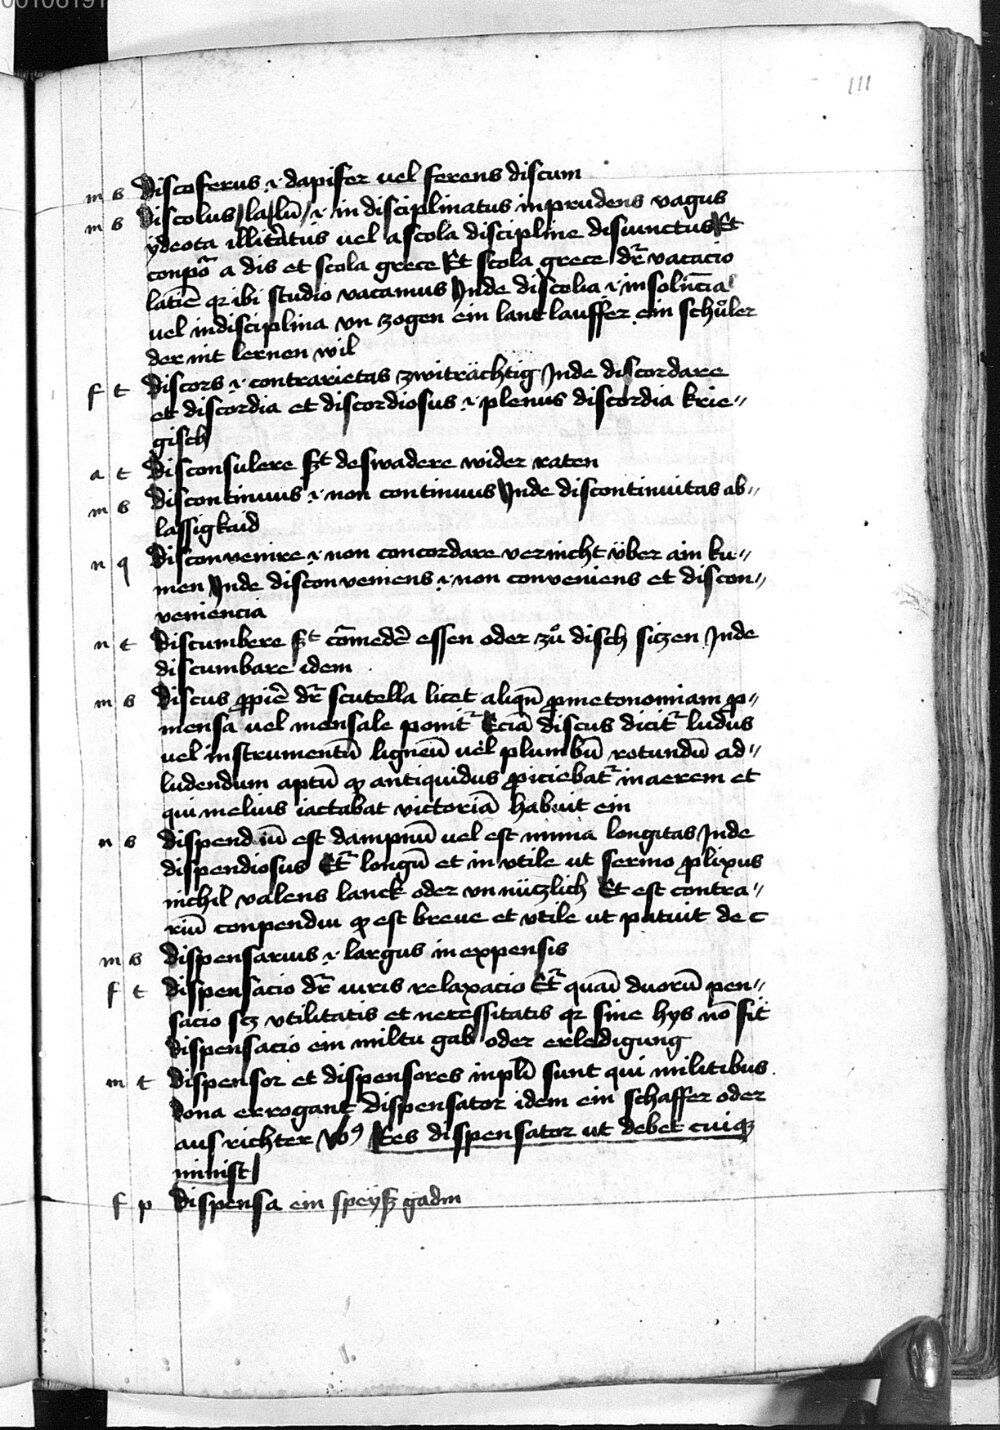 111
m s Discoferus .i. dapifer uel ferens discum
m s Discolus la lū .i. indisciplinatus inprudens vagus
ydeota illitātus uel a scola discipline disiunctus Et
conpōr a dis et scola grece Et scola grece dr̄ vacacio
latiē qr ibi studio vacamus Inde discolia .i. insolūcia
uel indisciplina vn zogen ein lant lauffer ein schuͦler
der nit lernen wil
f t Discors .i. contrarietas zwiträchtig Inde discordare
et discordia et discordiosus .i. plenus discordia krie〃
gisch
a t Disconsulere .i. deswadere wider raten
m s Discontinuus .i. non continuus Inde discontinuitas ab〃
lassigkaid
n q Disconvenire .i. non concordare vernicht über ain ku〃
men Inde disconveniens .i. non conveniens et discon〃
veniencia
n t Discumbere com̄edē essen oder zuͦ disch sizen Inde
discumbare idem
m s Discus ꝓpiē dr̄ scutella licet aliqn̄ ꝓmetonomiam ꝓ〃
mensa uel mensale ponit᷑ Eciā discus dicit᷑ ludus
uel instrumentū ligneū uel plumbū rotundū ad〃
ludendum aptū qͦ antiquidus ꝓiciebat᷑ in aerem et
qui melius iactabat victoriā habuit ein
n s dispendiū est dampnū uel est nimia longitas Inde
dispendiosus longū et in vtile ut sermo ꝓlixus
nichil valens lanck oder vnnüczlich Et est contra〃
riū conpendiu qͦ est breue et vtile ut patuit de c
m s dispensarius .i. largus in expensis
f t dispensacio dr̄ iuris relaxacio quā duorū pen〃
sacio scz vtilitatis et necessitatis qr sine hys nō sit
Dispensacio ein miltu gab oder erledigung
m t Dispensor et dispensores inplī sunt qui militibus
Dona errogant Dispensator idem ein schaffer oder
aus richter Vꝰ Res dispensator ut debet cuiqꝫ
minist
f p Dispensa ein speyß gadm